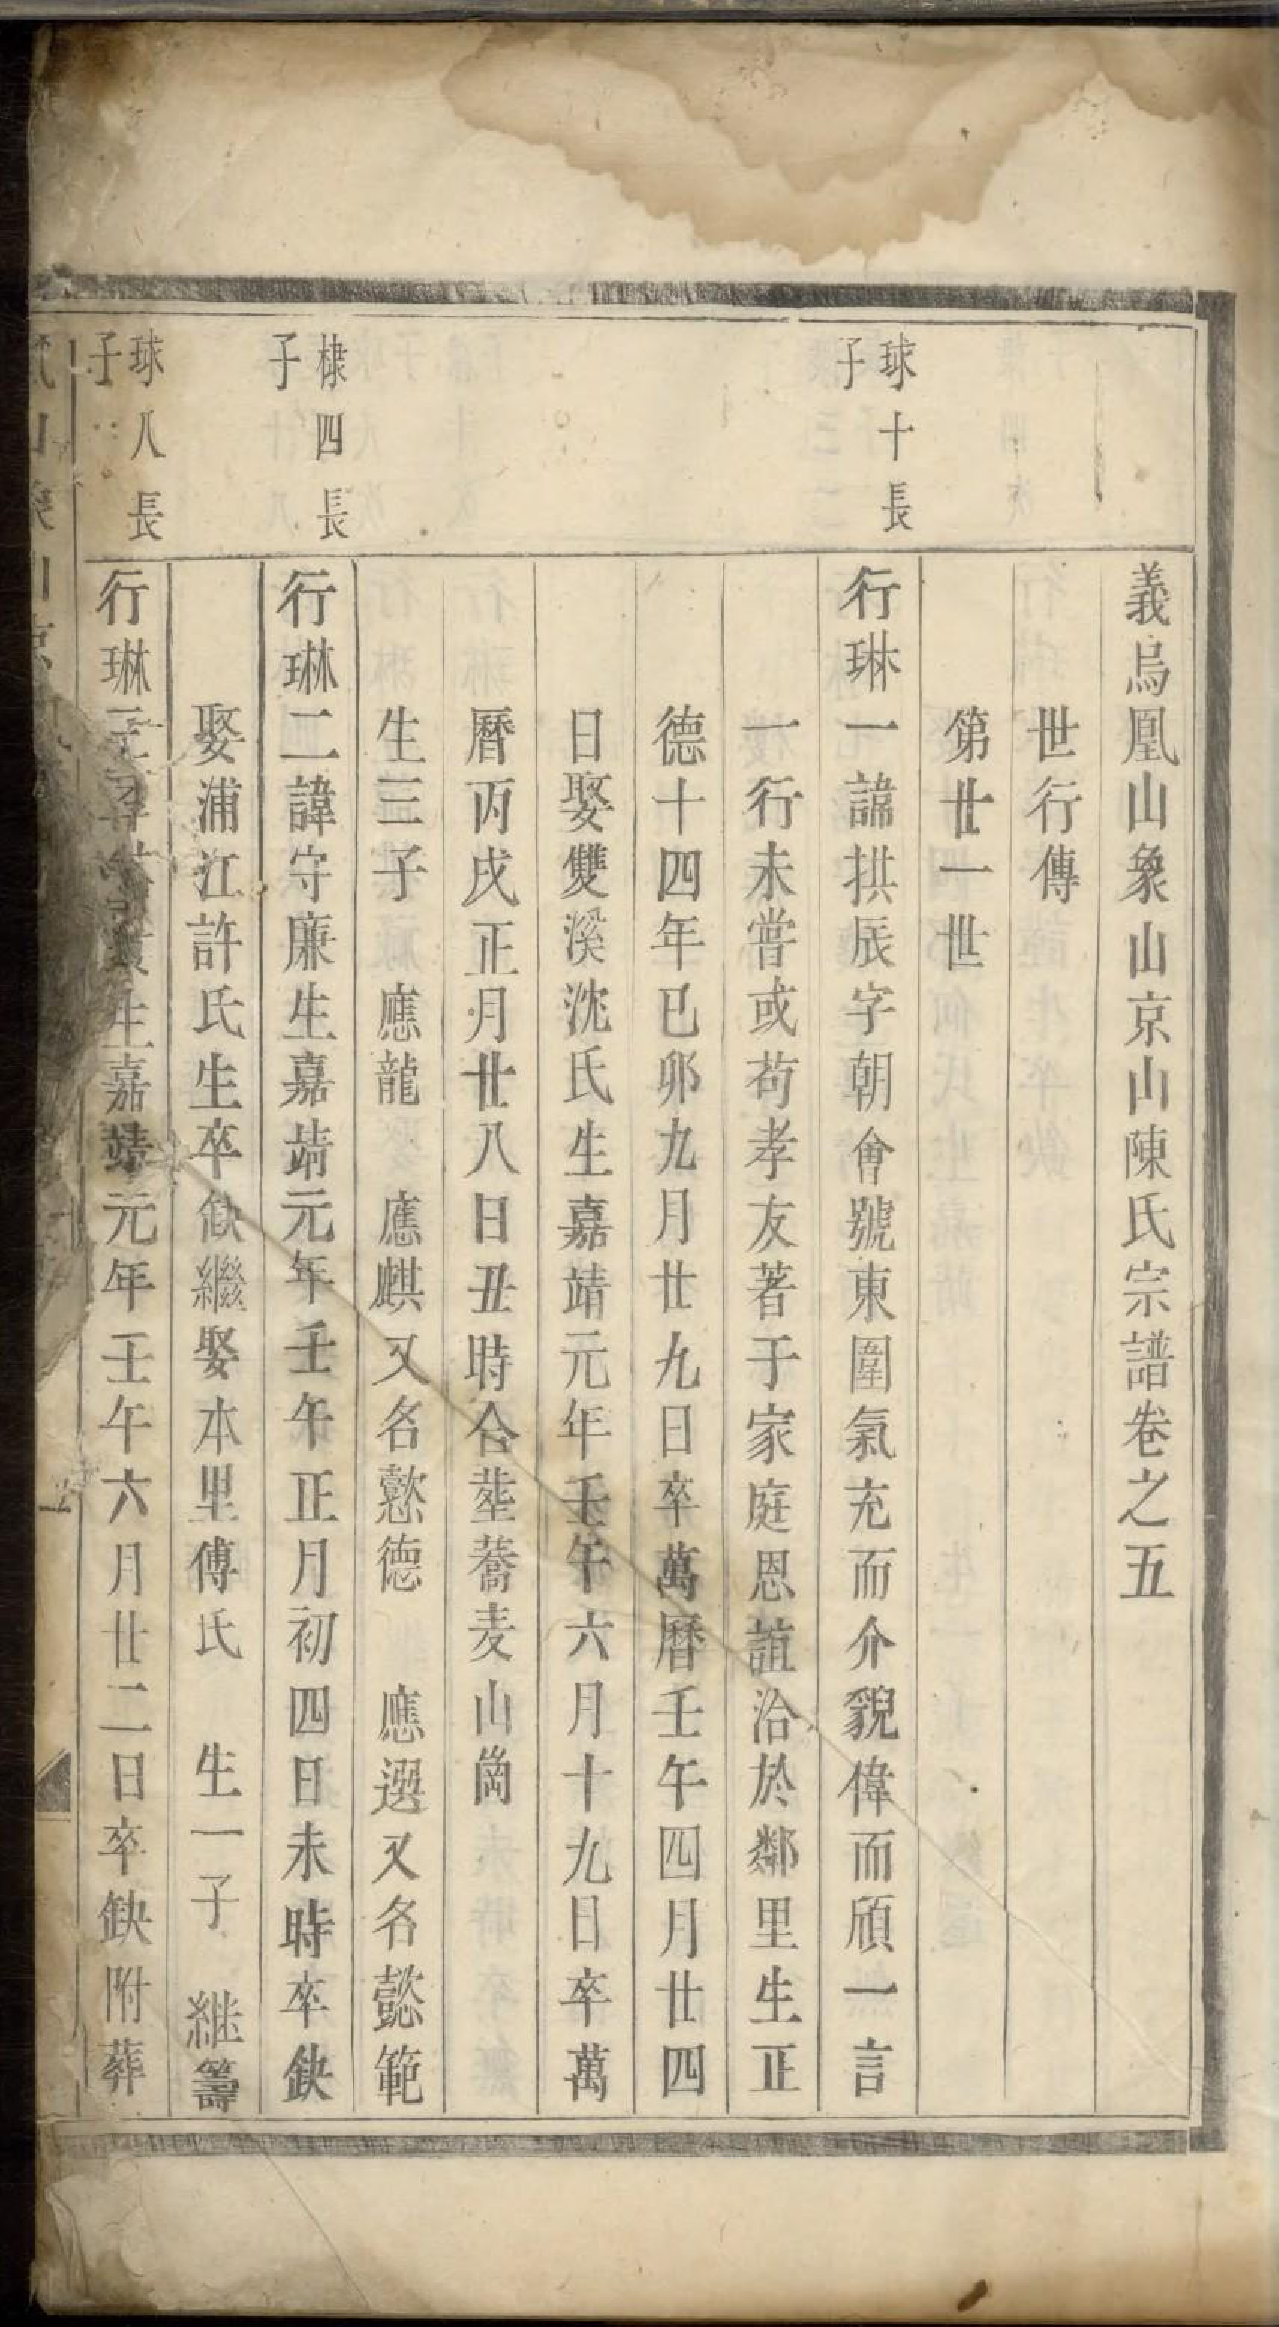 義烏凰山象山京山陳氏宗譜卷之五
世行傳
第廿一世
球十長子
行琳一諱拱辰字朝會號東圍氣充而介貌偉而頎一言
一行未嘗或苟孝友著于家庭恩誼洽於鄰里生正
德十四年已卯九月廿九日卒萬曆壬午四月廿四
日娶雙溪沈氏生嘉靖元年壬午六月十九日卒萬
曆丙戌正月廿八日丑時合塟蕎麦山崗
生三子 應龍 應麒又名懃德 應選又名懿範
棣四長子
行琳二諱守廉生嘉靖元年壬午正月初四日未時卒缺
娶浦江許氏生卒缺繼娶本里傅氏 生一子 継籌
球八長子
行琳三生嘉靖元年壬午六月廿二日卒缺附葬